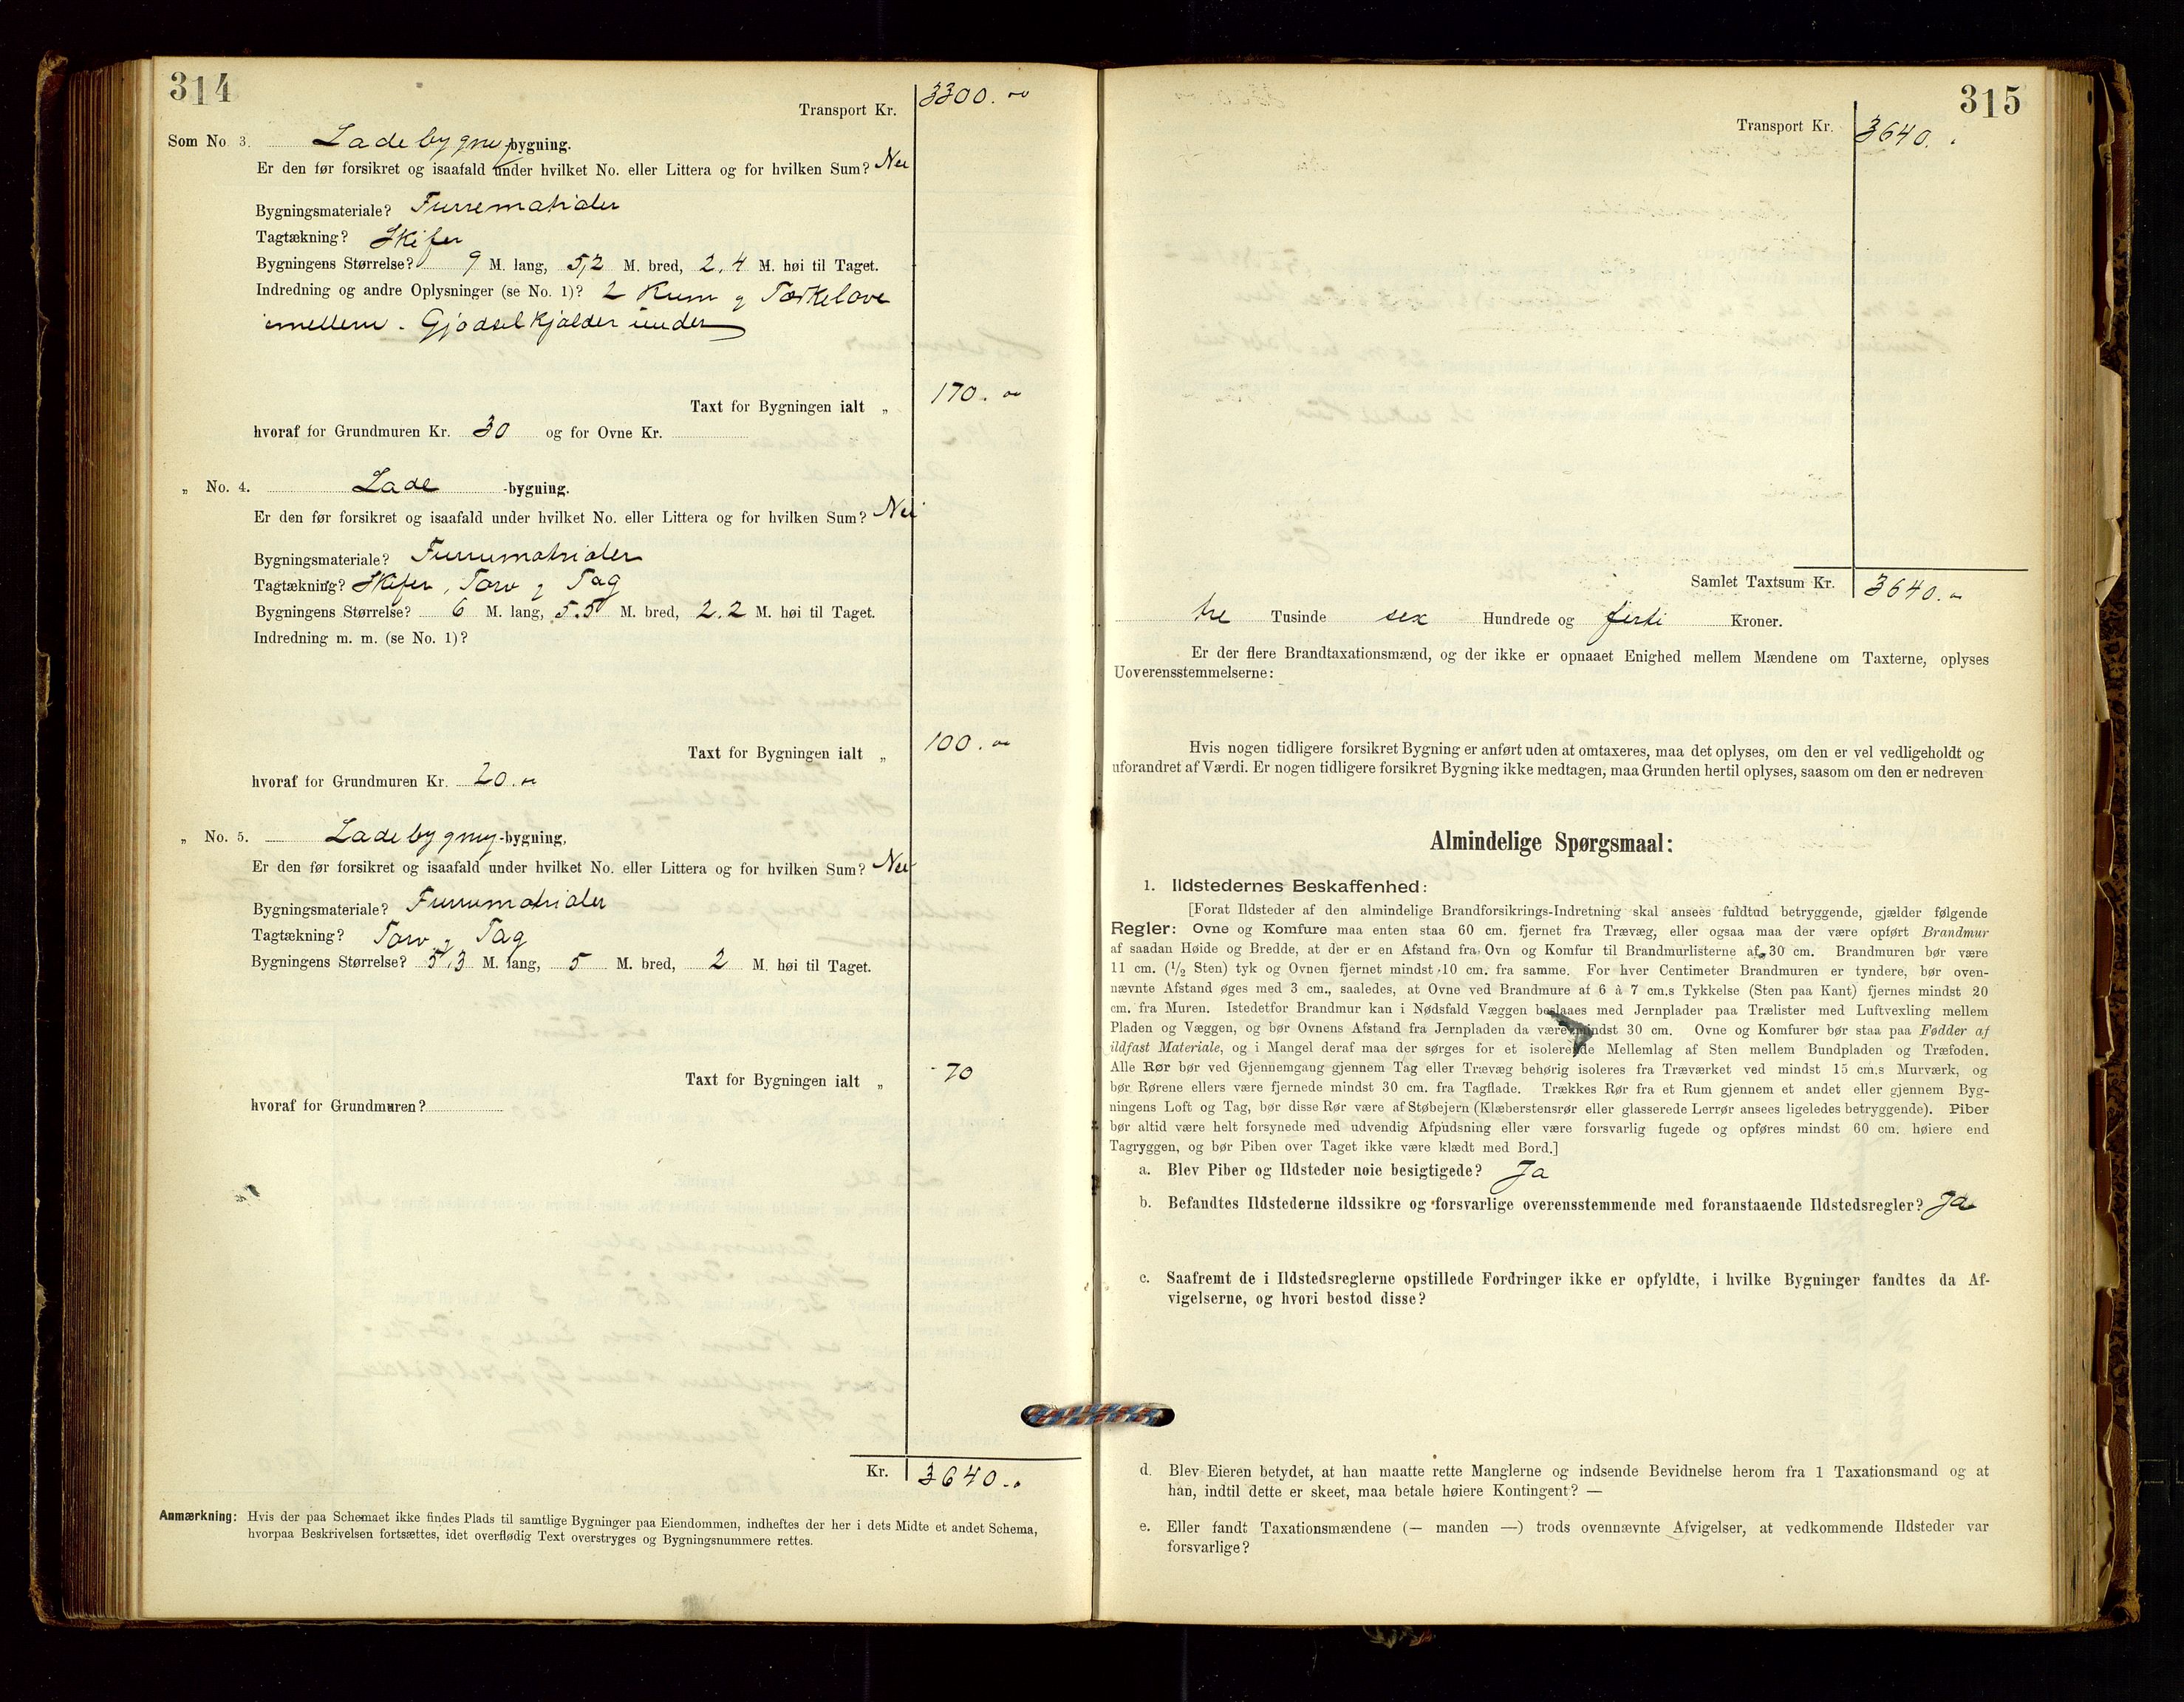 314
Transport Kr. 3300.
Som No 3. Ladebygnings-bygning.
Er den før forsikret og isaafald under hvilket No. eller Littera og for hvilken Sum? Nei
Bygningsmateriale? Furrematrialer
Tagtækning? Skifer
Bygningens Størrelse? 9 M. lang, 5,2 M. bred, 2.4 M. høi til Taget.
Indredning og andre Oplysninger (se No. 1)? 2 Rum og Tærkelove
imellem. Gjødselkjælder under
Taxt for Bygningen ialt „ 170.
hvoraf for Grundmuren Kr. 30 og for Ovne Kr.
„ No. 4. Lade -bygning.
Er den før forsikret og isaafald under hvilket No. eller Littera og for hvilken Sum? Nei
Bygningsmateriale? Furrumatrialer
Tagtækning? Skifer, Torv og Tag
Bygningens Størrelse? 6 M. lang, 5.5 M. bred, 2.2 M. høi til Taget.
Indredning m. m. (se No. 1)?
Taxt for Bygningen ialt „ 100.
hvoraf for Grundmuren Kr. 20.
„ No. 5. Ladebygning-bygning,
Er den før forsikret og isaafald under hvilket No. eller Littera og for hvilken Sum? Nei
Bygningsmateriale? Furrumatrialer
Tagtækning? Torv og Tag
Bygningens Størrelse? 5,3 M. lang, 5 M. bred, 2 M. høi til Taget.
Taxt for Bygningen ialt „ 70
hvoraf for Grundmuren?
Kr. 3640.
Anmærkning: Hvis der paa Schemaet ikke findes Plads til samtlige Bygninger paa Eiendommen, indheftes der her i dets Midte et andet Schema,
hvorpaa Beskrivelsen fortsættes, idet overflødig Text overstryges og Bygningsnummere rettes.
315
Transport Kr. 3640.
Samlet Taxtsum Kr. 3640.
tre Tusinde sex Hundrede og firti Kroner.
Er der flere Brandtaxationsmænd, og der ikke er opnaaet Enighed mellem Mændene om Taxterne, oplyses
Uoverensstemmelserne:
Hvis nogen tidligere forsikret Bygning er anført uden at omtaxeres, maa det oplyses, om den er vel vedligeholdt og
uforandret af Værdi. Er nogen tidligere forsikret Bygning ikke medtagen, maa Grunden hertil oplyses, saasom om den er nedreven
Almindelige Spørgsmaal:
1. Ildstedernes Beskaffenhed:
[Forat Ildsteder af den almindelige Brandforsikrings-Indretning skal ansees fuldtud betryggende, gjælder følgende
Regler: Ovne og Komfure maa enten staa 60 cm. fjernet fra Trævæg, eller ogsaa maa der være opført Brandmur
af saadan Høide og Bredde, at der er en Afstand fra Ovn og Komfur til Brandmurlisterne af 30 cm. Brandmuren bør være
11 cm. (1/2 Sten) tyk og Ovnen fjernet mindst 10 cm. fra samme. For hver Centimeter Brandmuren er tyndere, bør oven-
nævnte Afstand øges med 3 cm., saaledes, at Ovne ved Brandmure af 6 à 7 cm.s Tykkelse (Sten paa Kant) fjernes mindst 20
cm. fra Muren. Istedetfor Brandmur kan i Nødsfald Væggen beslaaes med Jernplader paa Trælister med Luftvexling mellem
Pladen og Væggen, og bør Ovnens Afstand fra Jernpladen da være mindst 30 cm. Ovne og Komfurer bør staa paa Fødder af
ildfast Materiale, og i Mangel deraf maa der sørges for et isolerende Mellemlag af Sten mellem Bundpladen og Træfoden.
Alle Rør bør ved Gjennemgang gjennem Tag eller Trævæg behørig isoleres fra Træværket ved mindst 15 cm.s Murværk, og
bør Rørene ellers være fjernede mindst 30 cm. fra Tagflade. Trækkes Rør fra et Rum gjennem et andet eller gjennem Byg-
ningens Loft og Tag, bør disse Rør være af Støbejern (Klæberstensrør eller glasserede Lerrør ansees ligeledes betryggende). Piber
bør altid være helt forsynede med udvendig Afpudsning eller være forsvarlig fugede og opføres mindst 60 cm. høiere end
Tagryggen, og bør Piben over Taget ikke være klædt med Bord.]
a. Blev Piber og Ildsteder nøie besigtigede? Ja
b. Befandtes Ildstederne ildssikre og forsvarlige overensstemmende med foranstaaende Ildstedsregler? Ja
c. Saafremt de i Ildstedsreglerne opstillede Fordringer ikke er opfyldte, i hvilke Bygninger fandtes da Af-
vigelserne, og hvori bestod disse?
d. Blev Eieren betydet, at han maatte rette Manglerne og indsende Bevidnelse herom fra 1 Taxationsmand og at
han, indtil dette er skeet, maa betale høiere Kontingent? —
e. Eller fandt Taxationsmændene (— manden —) trods ovennævnte Afvigelser, at vedkommende Ildsteder var
forsvarlige?